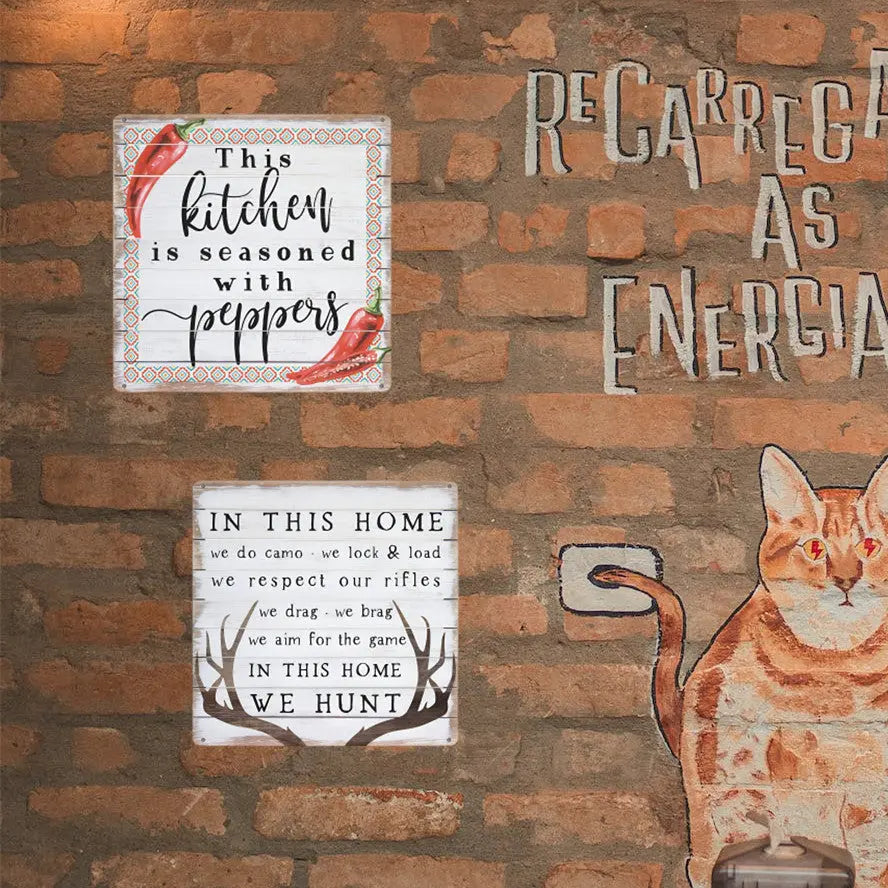 This
kitchen
is seasoned
with
peppers
IN THIS HOME
we do camo · we lock & load
we respect our rifles
we drag · we brag
we aim for the game
IN THIS HOME
WE HUNT
RECARREGA
AS
ENERGIA